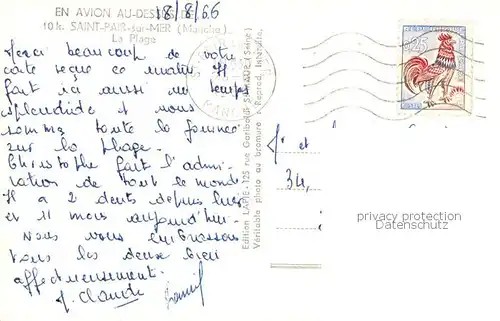 EN AVION AU-DESSUS DE
10 k. SAINT-PAIR-sur-MER (Manche)
La Plage
18/8/66
Merci beaucoup de votre
carte reçue ce matin. Il
fait ici aussi un temps
splendide et nous
sommes toute la journée
sur la plage.
Christophe fait l'admi-
ration de tout le monde
Il a 2 dents depuis hier
et 11 mois aujourd'hui.
Nous vous embrassons
tous les deux bien
affectueusement.
Claude
Edition LAPIE - 125 rue Garibaldi (Seine)
Véritable photo au bromure - Reprod. Interdite
et
34,
privacy protection
Datenschutz